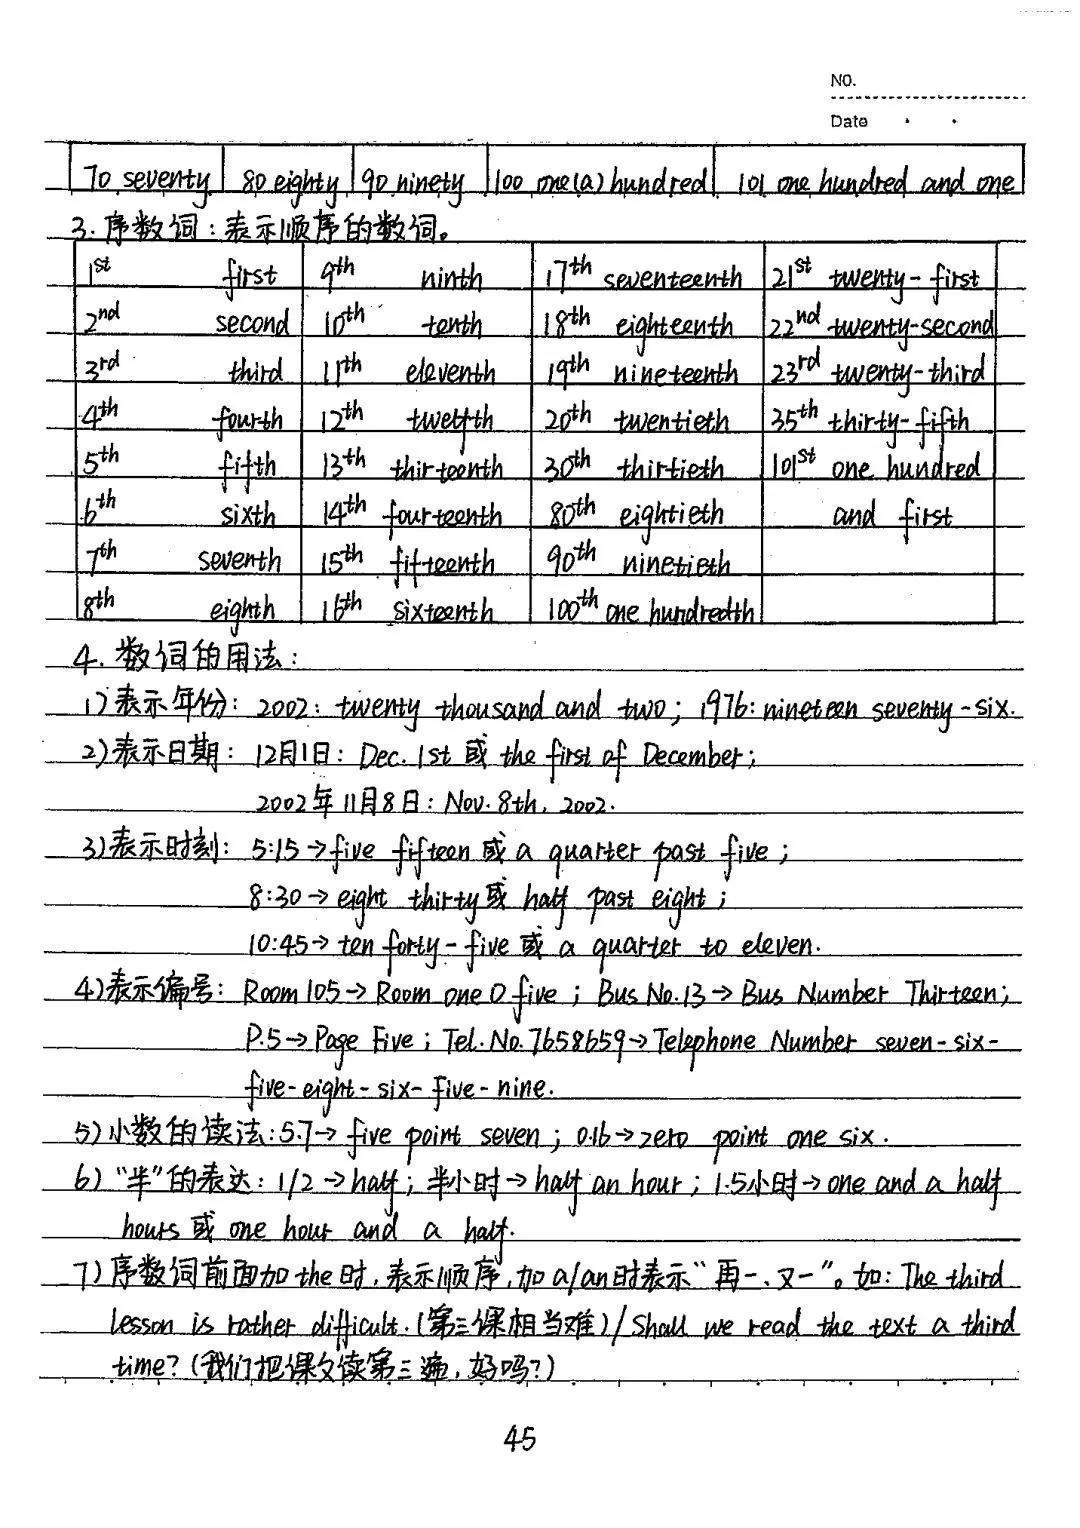 NO.
Date
70 seventy 80 eighty 90 ninety 100 one(a) hundred 101 one hundred and one
3. 序数词：表示顺序的数词。
1st first 9th ninth 17th seventeenth 21st twenty-first
2nd second 10th tenth 18th eighteenth 22nd twenty-second
3rd third 11th eleventh 19th nineteenth 23rd twenty-third
4th fourth 12th twelfth 20th twentieth 35th thirty-fifth
5th fifth 13th thirteenth 30th thirtieth 101st one hundred
6th sixth 14th fourteenth 80th eightieth and first
7th seventh 15th fifteenth 90th ninetieth
8th eighth 16th sixteenth 100th one hundredth
4. 数词的用法：
1)表示年份：2002: twenty thousand and two；1976: nineteen seventy-six.
2)表示日期：12月1日：Dec. 1st 或 the first of December；
2002年11月8日：Nov. 8th, 2002.
3)表示时刻：5:15→five fifteen 或 a quarter past five；
8:30→eight thirty或 half past eight；
10:45→ten forty-five 或 a quarter to eleven.
4)表示编号：Room 105→Room one O five；Bus No.13→Bus Number Thirteen；
P.5→Page Five；Tel. No. 7658659→Telephone Number seven-six-
five-eight-six-five-nine.
5)小数的读法：5.7→five point seven；0.16→zero point one six.
6)“半”的表达：1/2→half；半小时→half an hour；1.5小时→one and a half
hours 或 one hour and a half.
7)序数词前面加the时，表示顺序，加a/an时表示“再一、又一”。如：The third
lesson is rather difficult.(第三课相当难)/Shall we read the text a third
time?(我们把课文读第三遍，好吗?)
45